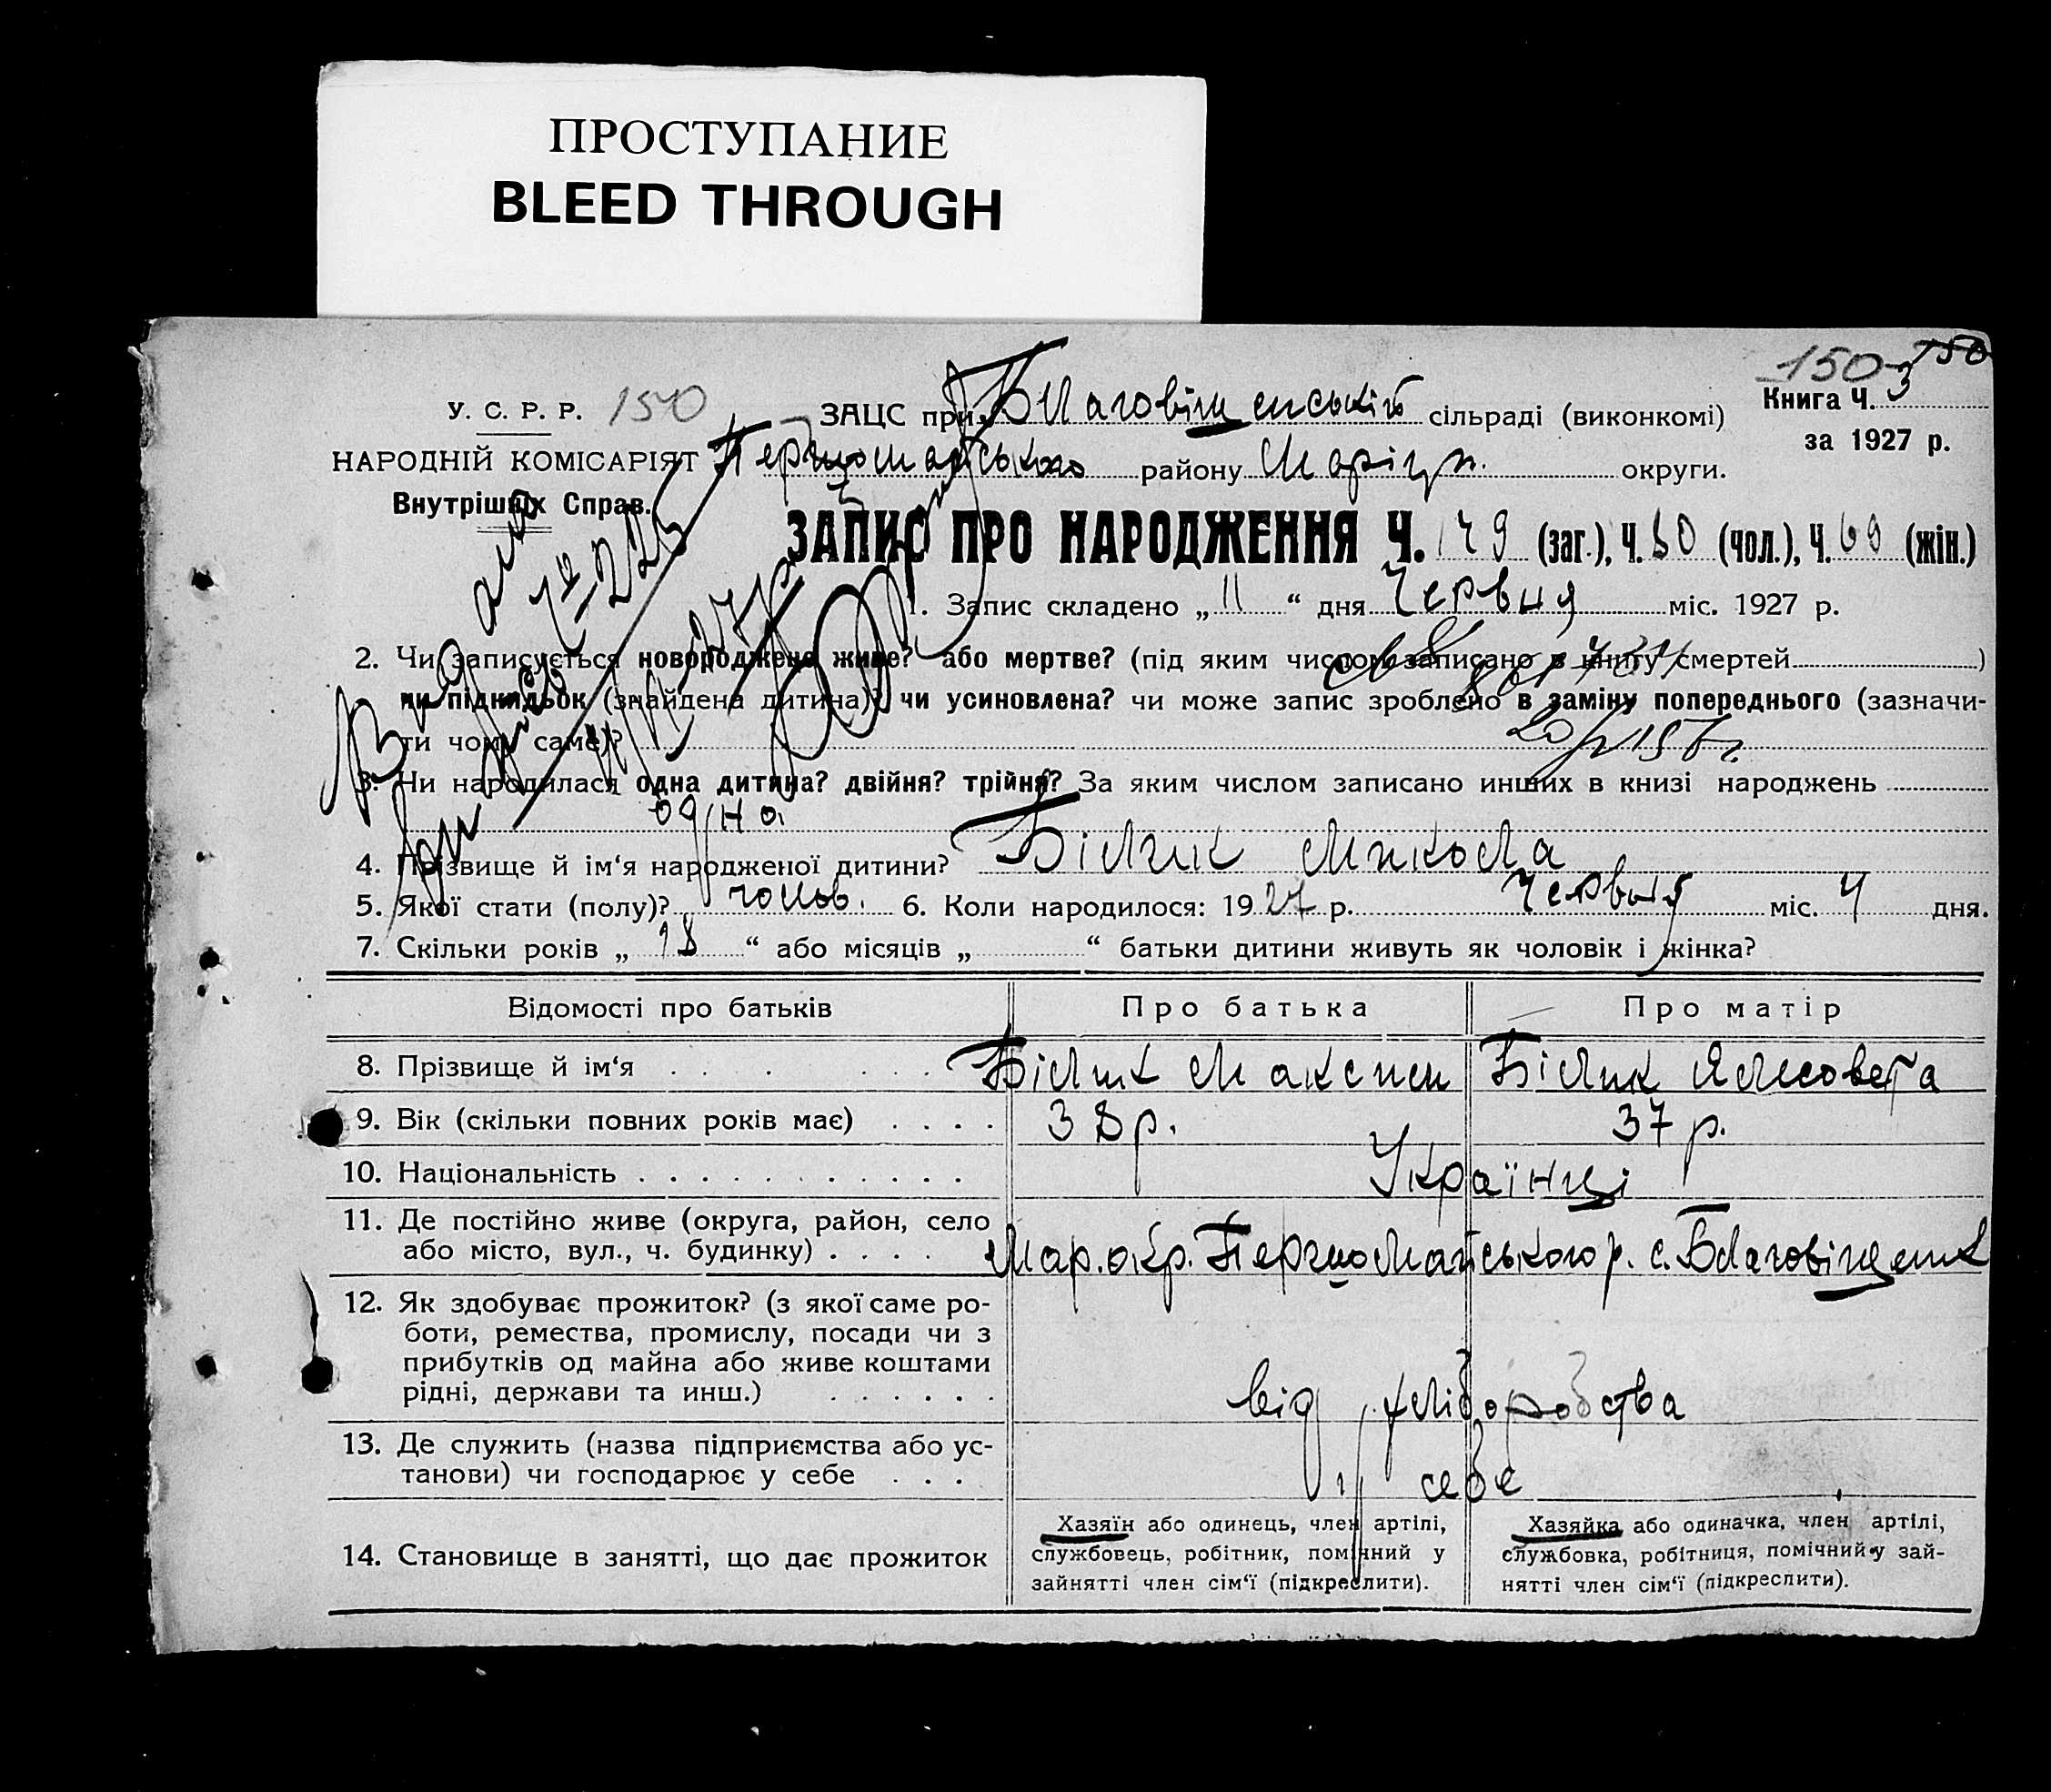 ПРОСТУПАНИЕ
BLEED THROUGH
150 150
У. С. Р. Р. 150 ЗАЦС при Благовіщенській сільраді (виконкомі) Книга Ч. 3
за 1927 р.
НАРОДНІЙ КОМІСАРІЯТ Першомайського району Маріуп. округи.
Внутрішніх Справ.
ЗАПИС ПРО НАРОДЖЕННЯ Ч. 149 (заг.), Ч. 80 (чол.), Ч. 69 (жін.)
1. Запис складено „ 11 “ дня Червня міс. 1927 р.
2. Чи записується новороджене живе? або мертве? (під яким числом записано в книгу смертей )
чи підкидьок (знайдена дитина)? чи усиновлена? чи може запис зроблено в заміну попереднього (зазначи-
ти чому саме)?
3. Чи народилася одна дитина? двійня? трійня? За яким числом записано инших в книзі народжень
одна
4. Прізвище й ім‘я народженої дитини? Білик Микола
5. Якої стати (полу)? чолов. 6. Коли народилося: 1927 р. Червня міс. 4 дня.
7. Скільки років „ 18 “ або місяців „ “ батьки дитини живуть як чоловік і жінка?
Відомості про батьків Про батька Про матір
8. Прізвище й ім‘я Білик Максим Білик Ялисовета
9. Вік (скільки повних років має) 38 р. 37 р.
10. Національність Українці
11. Де постійно живе (округа, район, село
або місто, вул., ч. будинку) Мар. окр. Першомайського р. с. Благовіщенк
12. Як здобуває прожиток? (з якої саме ро-
боти, ремества, промислу, посади чи з
прибутків од майна або живе коштами
рідні, держави та инш.) від хліборобства
13. Де служить (назва підприємства або ус-
танови) чи господарює у себе у себе
14. Становище в занятті, що дає прожиток
Хазяїн або одинець, член артілі,
службовець, робітник, помічний у
зайнятті член сім‘ї (підкреслити).
Хазяйка або одиначка, член артілі,
службовка, робітниця, помічний у зай-
нятті член сім‘ї (підкреслити).